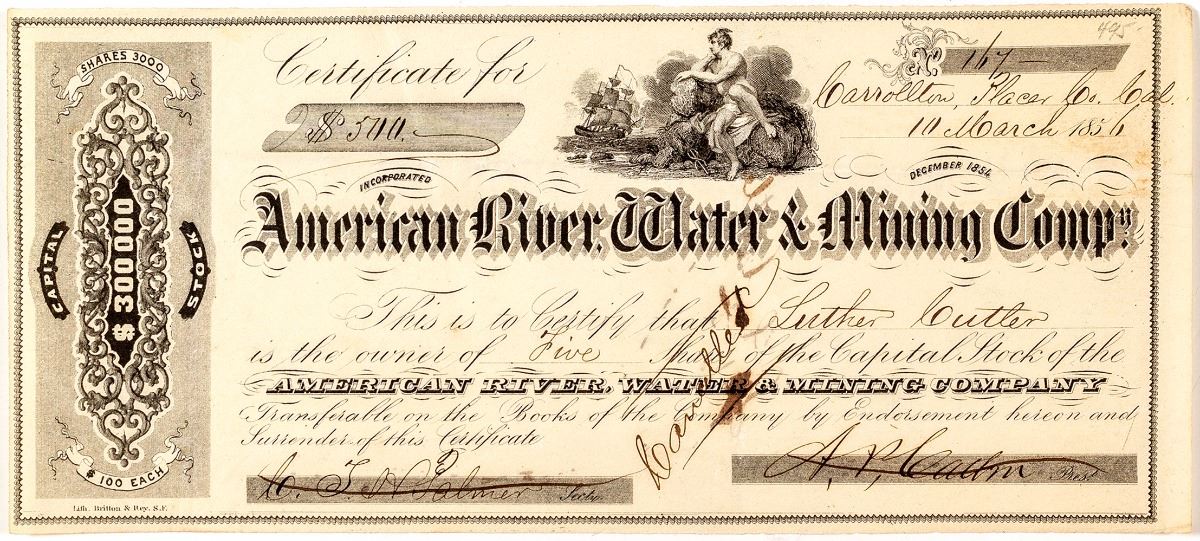 SHARES 3000
CAPITAL
$ 300000
STOCK
$ 100 EACH
Lith. Britton & Rey. S.F.
Certificate for
$ 500.
No 167
495
Carrollton, Placer Co. Cal.
10 March 1856
INCORPORATED
DECEMBER 1854
American River, Water & Mining Compy.
This is to Certify that Luther Cutler
is the owner of Five Shares of the Capital Stock of the
AMERICAN RIVER, WATER & MINING COMPANY
Transferable on the Books of the Company by Endorsement hereon and
Surrender of this Certificate
Cancelled
Palmer Secty.
A. P. Catlin Pres.